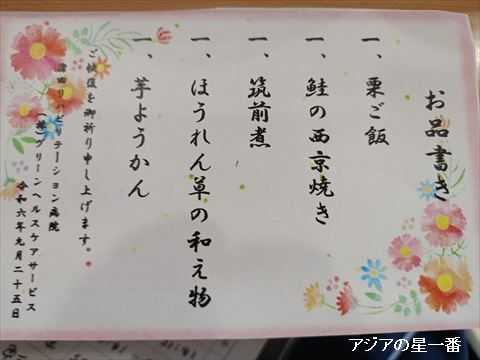 お品書き
一、栗ご飯
一、鮭の西京焼き
一、筑前煮
一、ほうれん草の和え物
一、芋ようかん
ご快復を御祈り申し上げます。
リハビリテーション病院
(株)グリーンヘルスケアサービス
令和六年九月二十五日
アジアの星一番